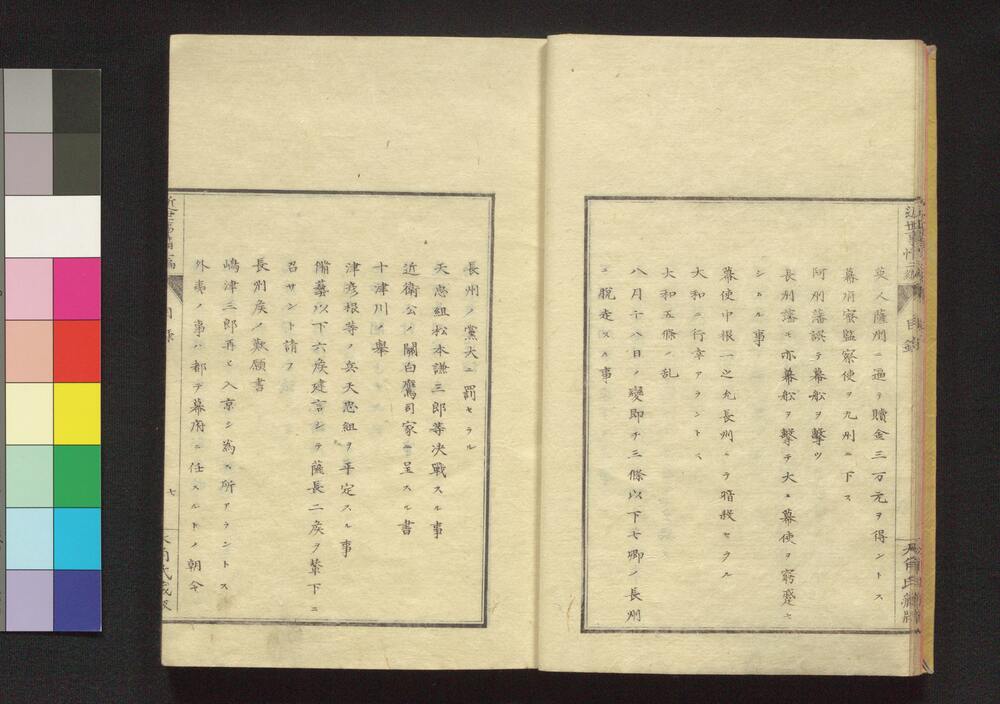 英人薩州ニ逼リ贖金三万元ヲ得ントス
幕府察監察使ヲ九州ニ下ス
阿州藩誤テ幕舩ヲ擊ツ
長州藩モ亦幕舩ヲ擊チ大ニ幕使ヲ窮蹙セ
シムル事
幕使中根一之允長州ニテ暗殺セラル
大和ニ行幸アラントス
大和五條ノ乱
八月十八日ノ變即チ三條以下七卿ノ長州
ニ脱走スル事
長州ノ黨大ニ罰セラル
天忠組松本謙三郎等決戰スル事
近衛公ノ關白鷹司家ニ呈スル書
十津川ノ舉
津彦根等ノ兵天忠組ヲ平定スル事
備藝以下六矦建言シテ薩長二矦ヲ輦下ニ
召サント請フ
長州矦ノ歎願書
嶋津三郎再ヒ入京シ為ス所アラントス
外夷ノ事ハ都テ幕府ニ任スルトノ朝令
七